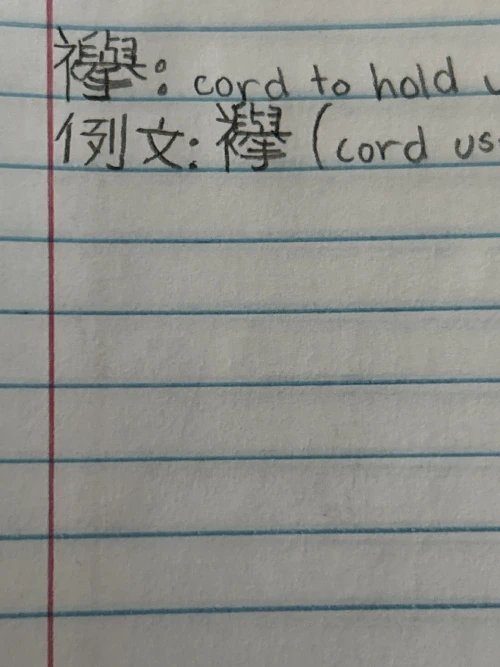 襷: cord to hold
例文: 襷 (cord us